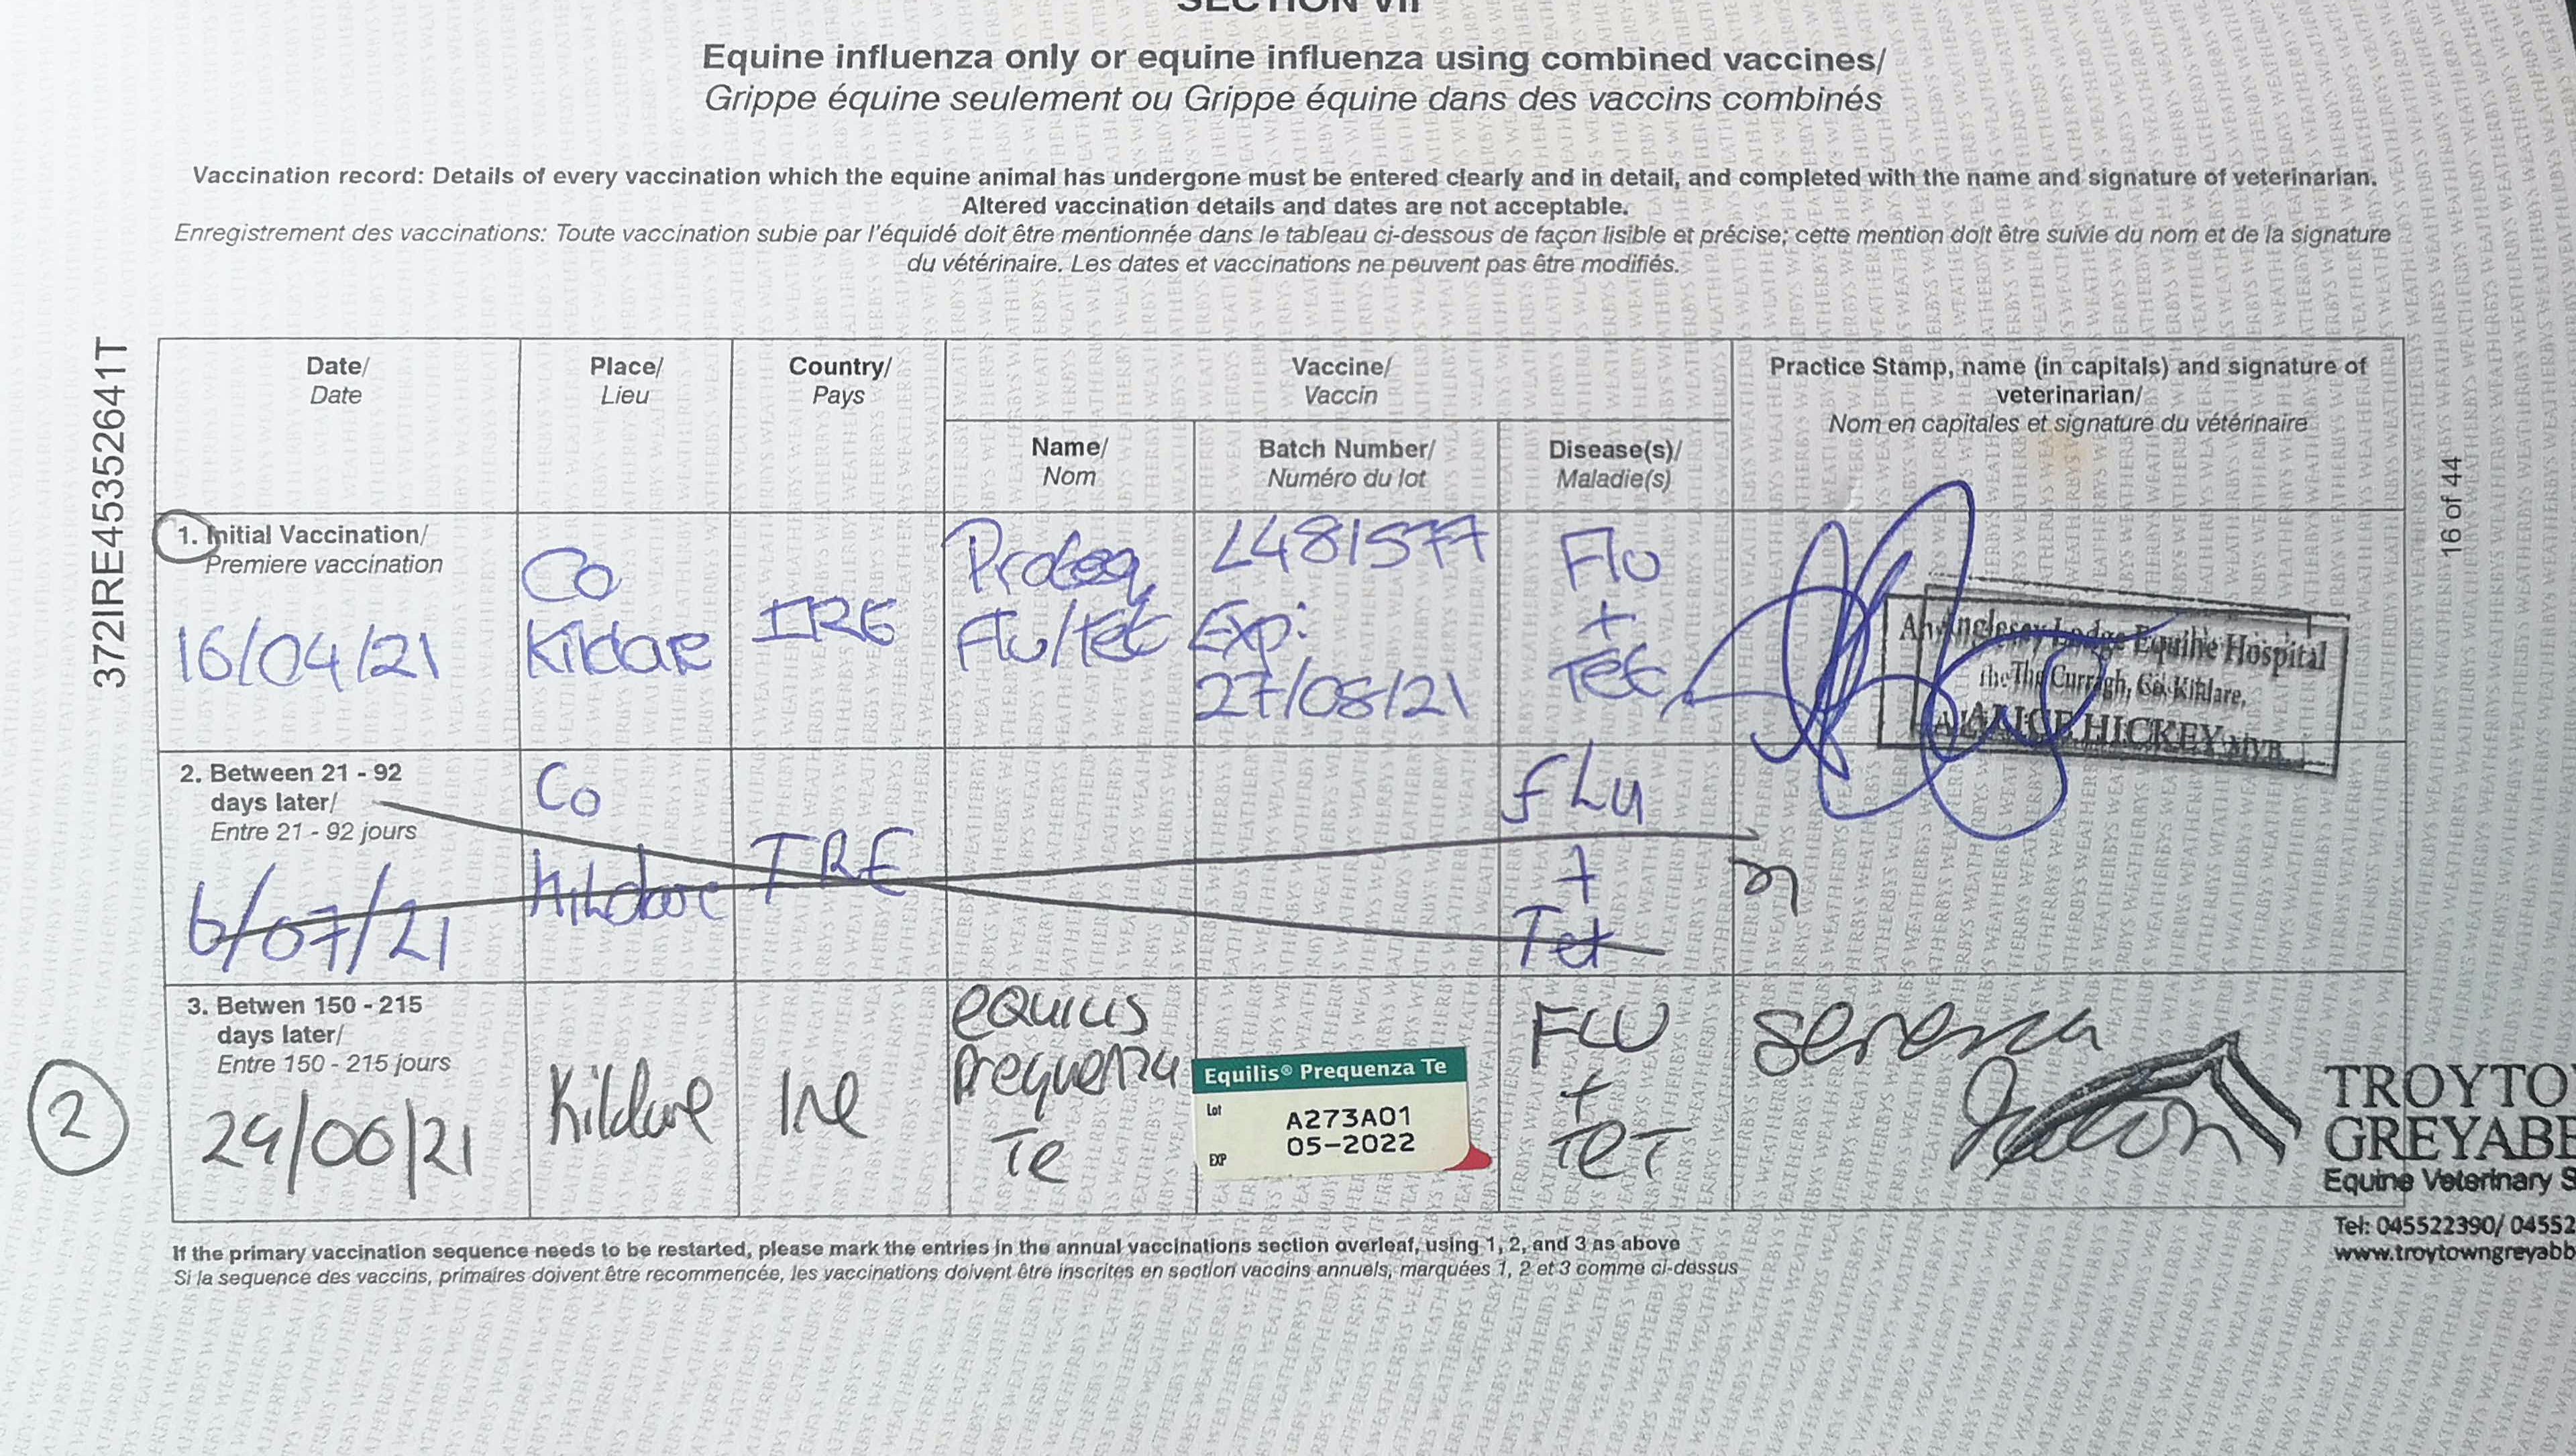 SECTION VII
Equine influenza only or equine influenza using combined vaccines/
Grippe équine seulement ou Grippe équine dans des vaccins combinés
Vaccination record: Details of every vaccination which the equine animal has undergone must be entered clearly and in detail, and completed with the name and signature of veterinarian.
Altered vaccination details and dates are not acceptable.
Enregistrement des vaccinations: Toute vaccination subie par l'équidé doit être mentionnée dans le tableau ci-dessous de façon lisible et précise; cette mention doit être suivie du nom et de la signature
du vétérinaire. Les dates et vaccinations ne peuvent pas être modifiés.
372IRE45352641T
16 of 44
Date/
Date
Place/
Lieu
Country/
Pays
Vaccine/
Vaccin
Name/
Nom
Batch Number/
Numéro du lot
Disease(s)/
Maladie(s)
Practice Stamp, name (in capitals) and signature of
veterinarian/
Nom en capitales et signature du vétérinaire
1. Initial Vaccination/
Premiere vaccination
16/04/21
Co
Kildare
IRE
Proteq
Flu/Tet
L481577
Exp:
27/08/21
Flu
+
Tet
Anglesey Lodge Equine Hospital
The Curragh, Co. Kildare,
ALICE HICKEY MVB
2. Between 21 - 92
days later/
Entre 21 - 92 jours
6/07/21
Co
Kildare
IRE
FLu
+
Tet
3. Betwen 150 - 215
days later/
Entre 150 - 215 jours
2
29/06/21
Kildare
Ire
EQUILIS
Prequenza
Te
Equilis® Prequenza Te
Lot
A273A01
05-2022
EXP
FLU
+
TET
Serena
TROYTO
GREYABB
Equine Veterinary S
Tel: 045522390/ 04552
www.troytowngreyabb
If the primary vaccination sequence needs to be restarted, please mark the entries in the annual vaccinations section overleaf, using 1, 2, and 3 as above
Si la sequence des vaccins, primaires doivent être recommencée, les vaccinations doivent être inscrites en section vaccins annuels, marquées 1, 2 et 3 comme ci-dessus